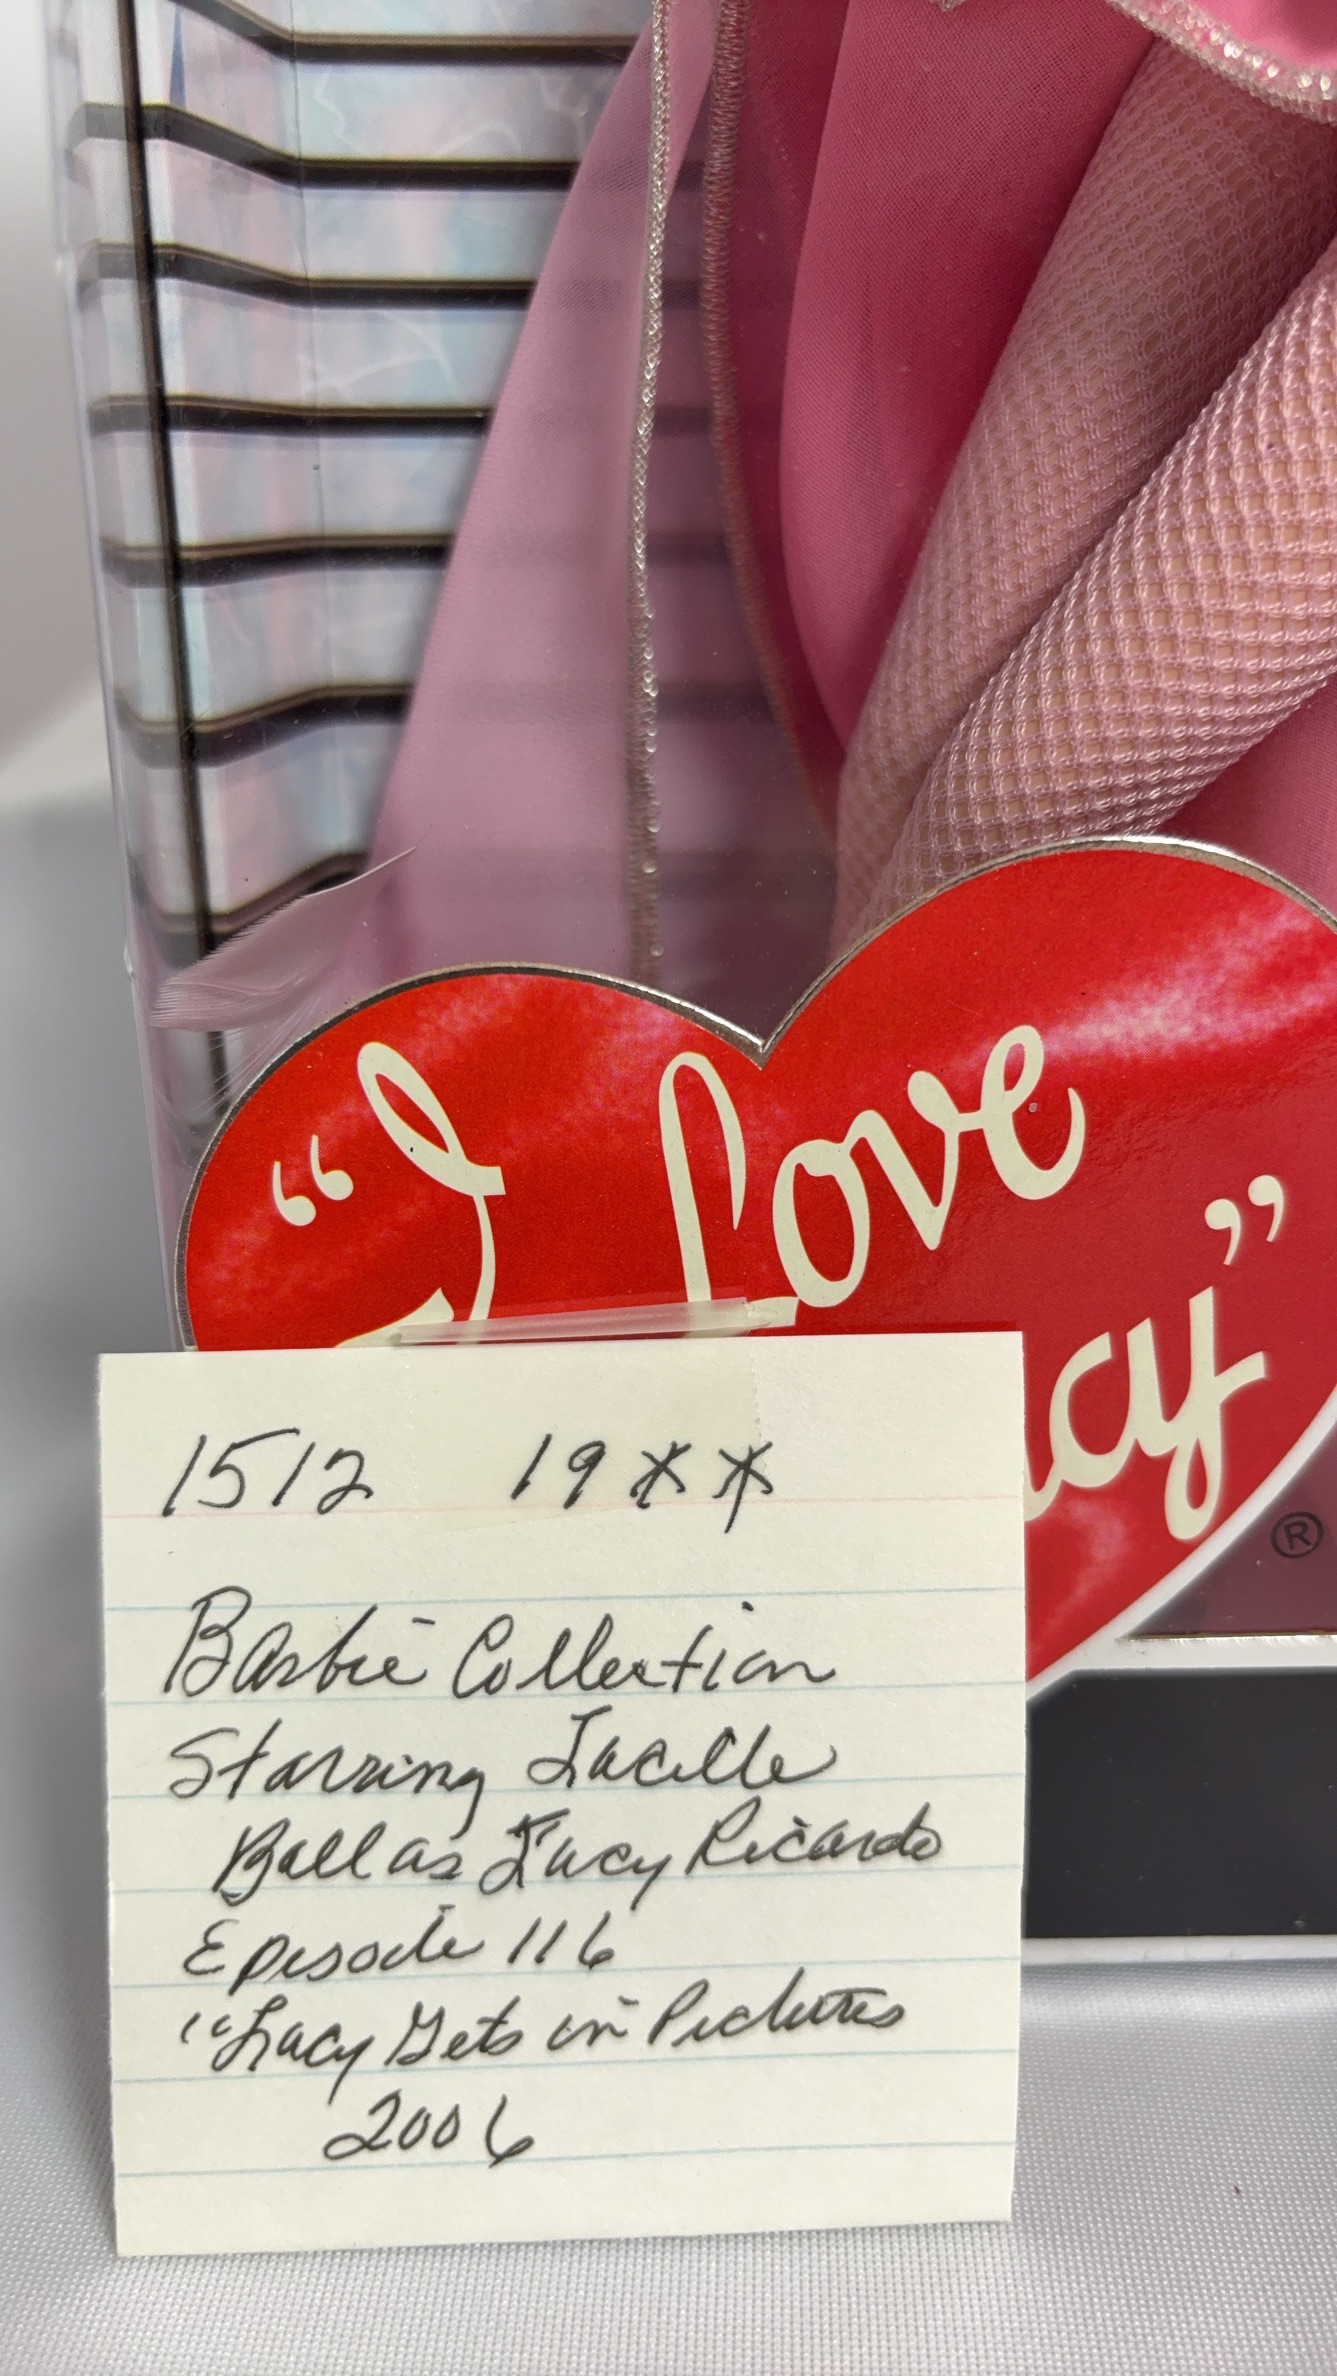 “I Love
cy”
®
1512 19**
Barbie Collection
Starring Lucille
Ball as Lucy Ricardo
Episode 116
"Lucy Gets in Pictures
2006